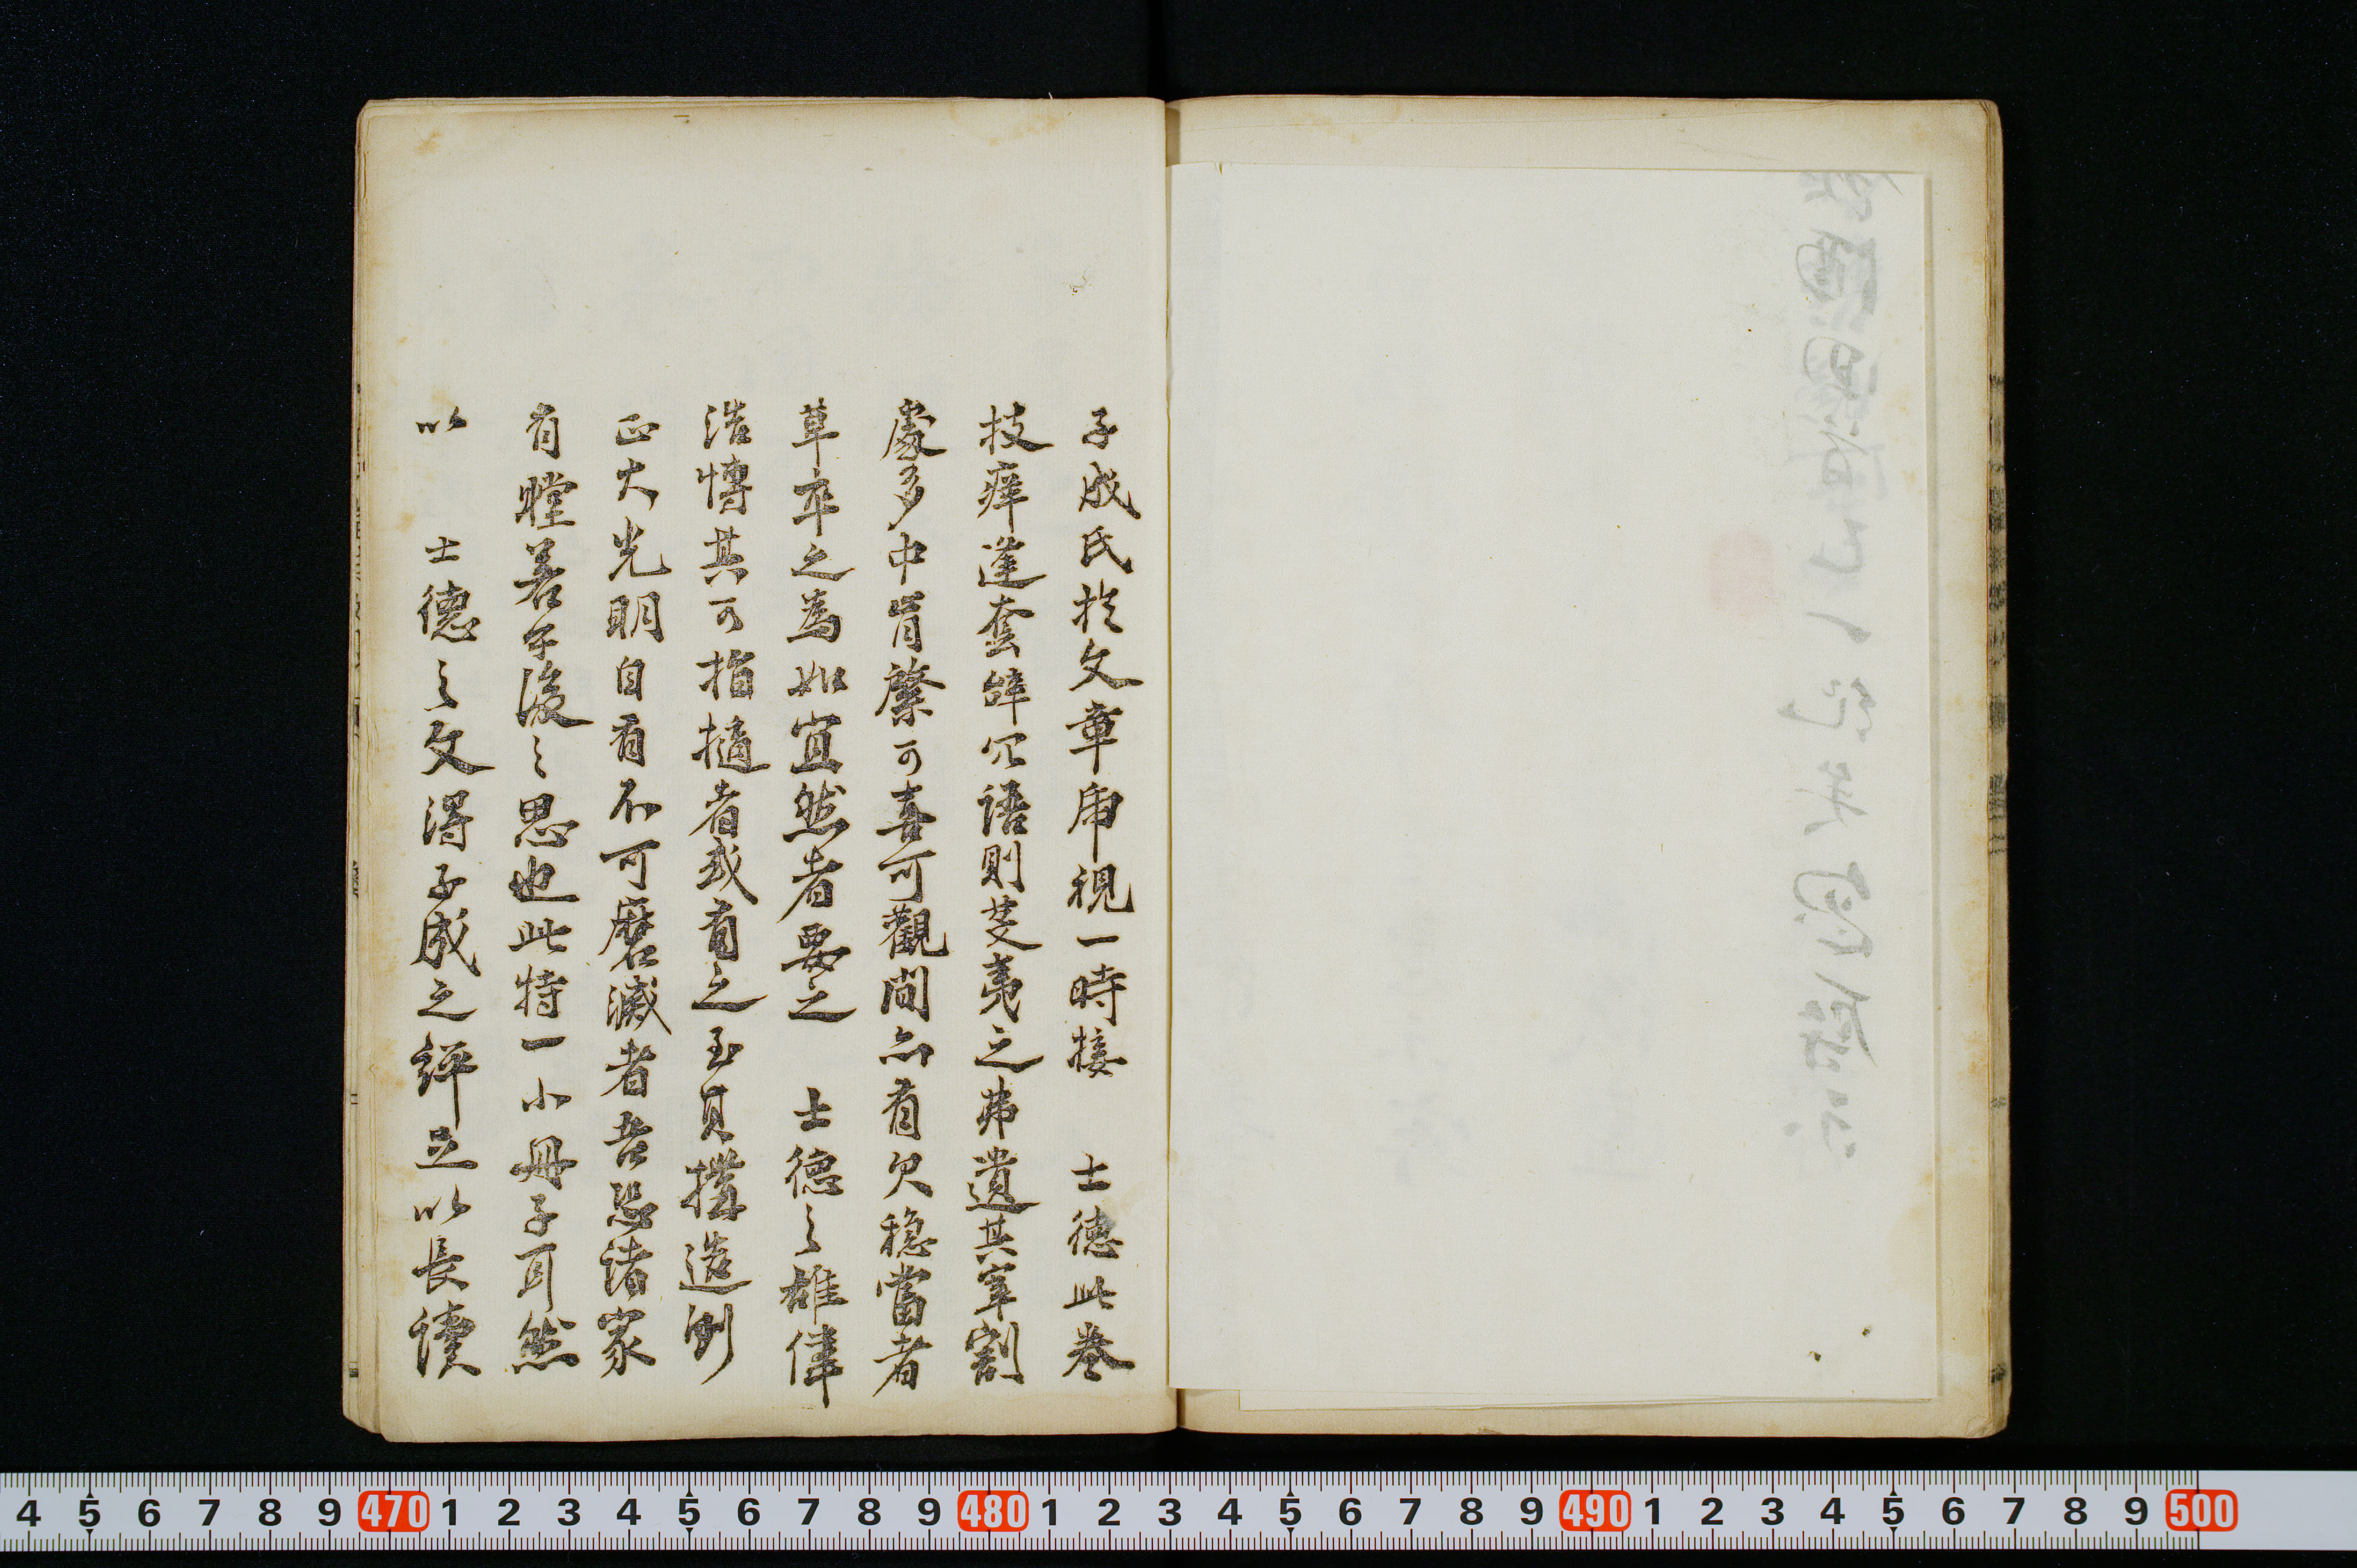 子成氏於文章虎視一時接　士德此卷
技癢逢套辞冗語則芟夷之弗遺其宰割
處多中肯綮可喜可觀間亦有欠穩當者
草卒之為如宜然者要之　士德之雄偉
浩博其可指擿者或有之至其撰造例
正大光明自有不可磨滅者吾恐諸家
有瞠若乎後之思也此特一小冊子耳然
以　士德之文得子成之評足以長讀
4 5 6 7 8 9 470 1 2 3 4 5 6 7 8 9 480 1 2 3 4 5 6 7 8 9 490 1 2 3 4 5 6 7 8 9 500